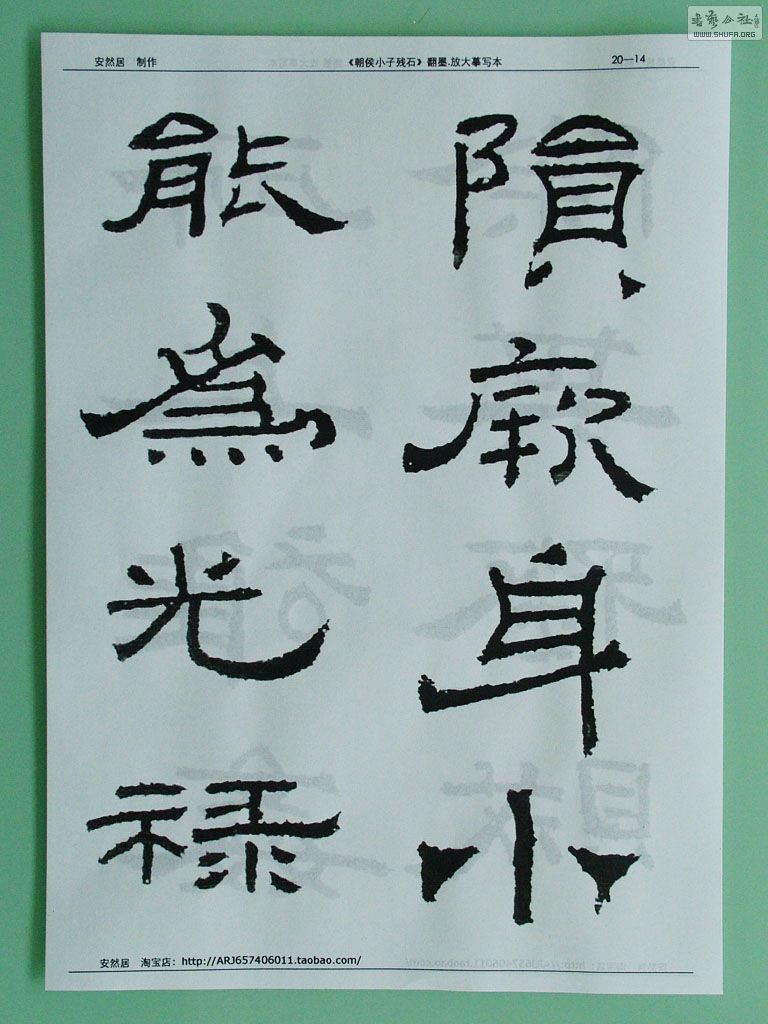 書藝公社
WWW.SHUFA.ORG
安然居 制作 《朝侯小子残石》 翻墨.放大摹写本 20—14
隕厥身小
能為光祿
安然居 淘宝店：http://ARJ657406011.taobao.com/